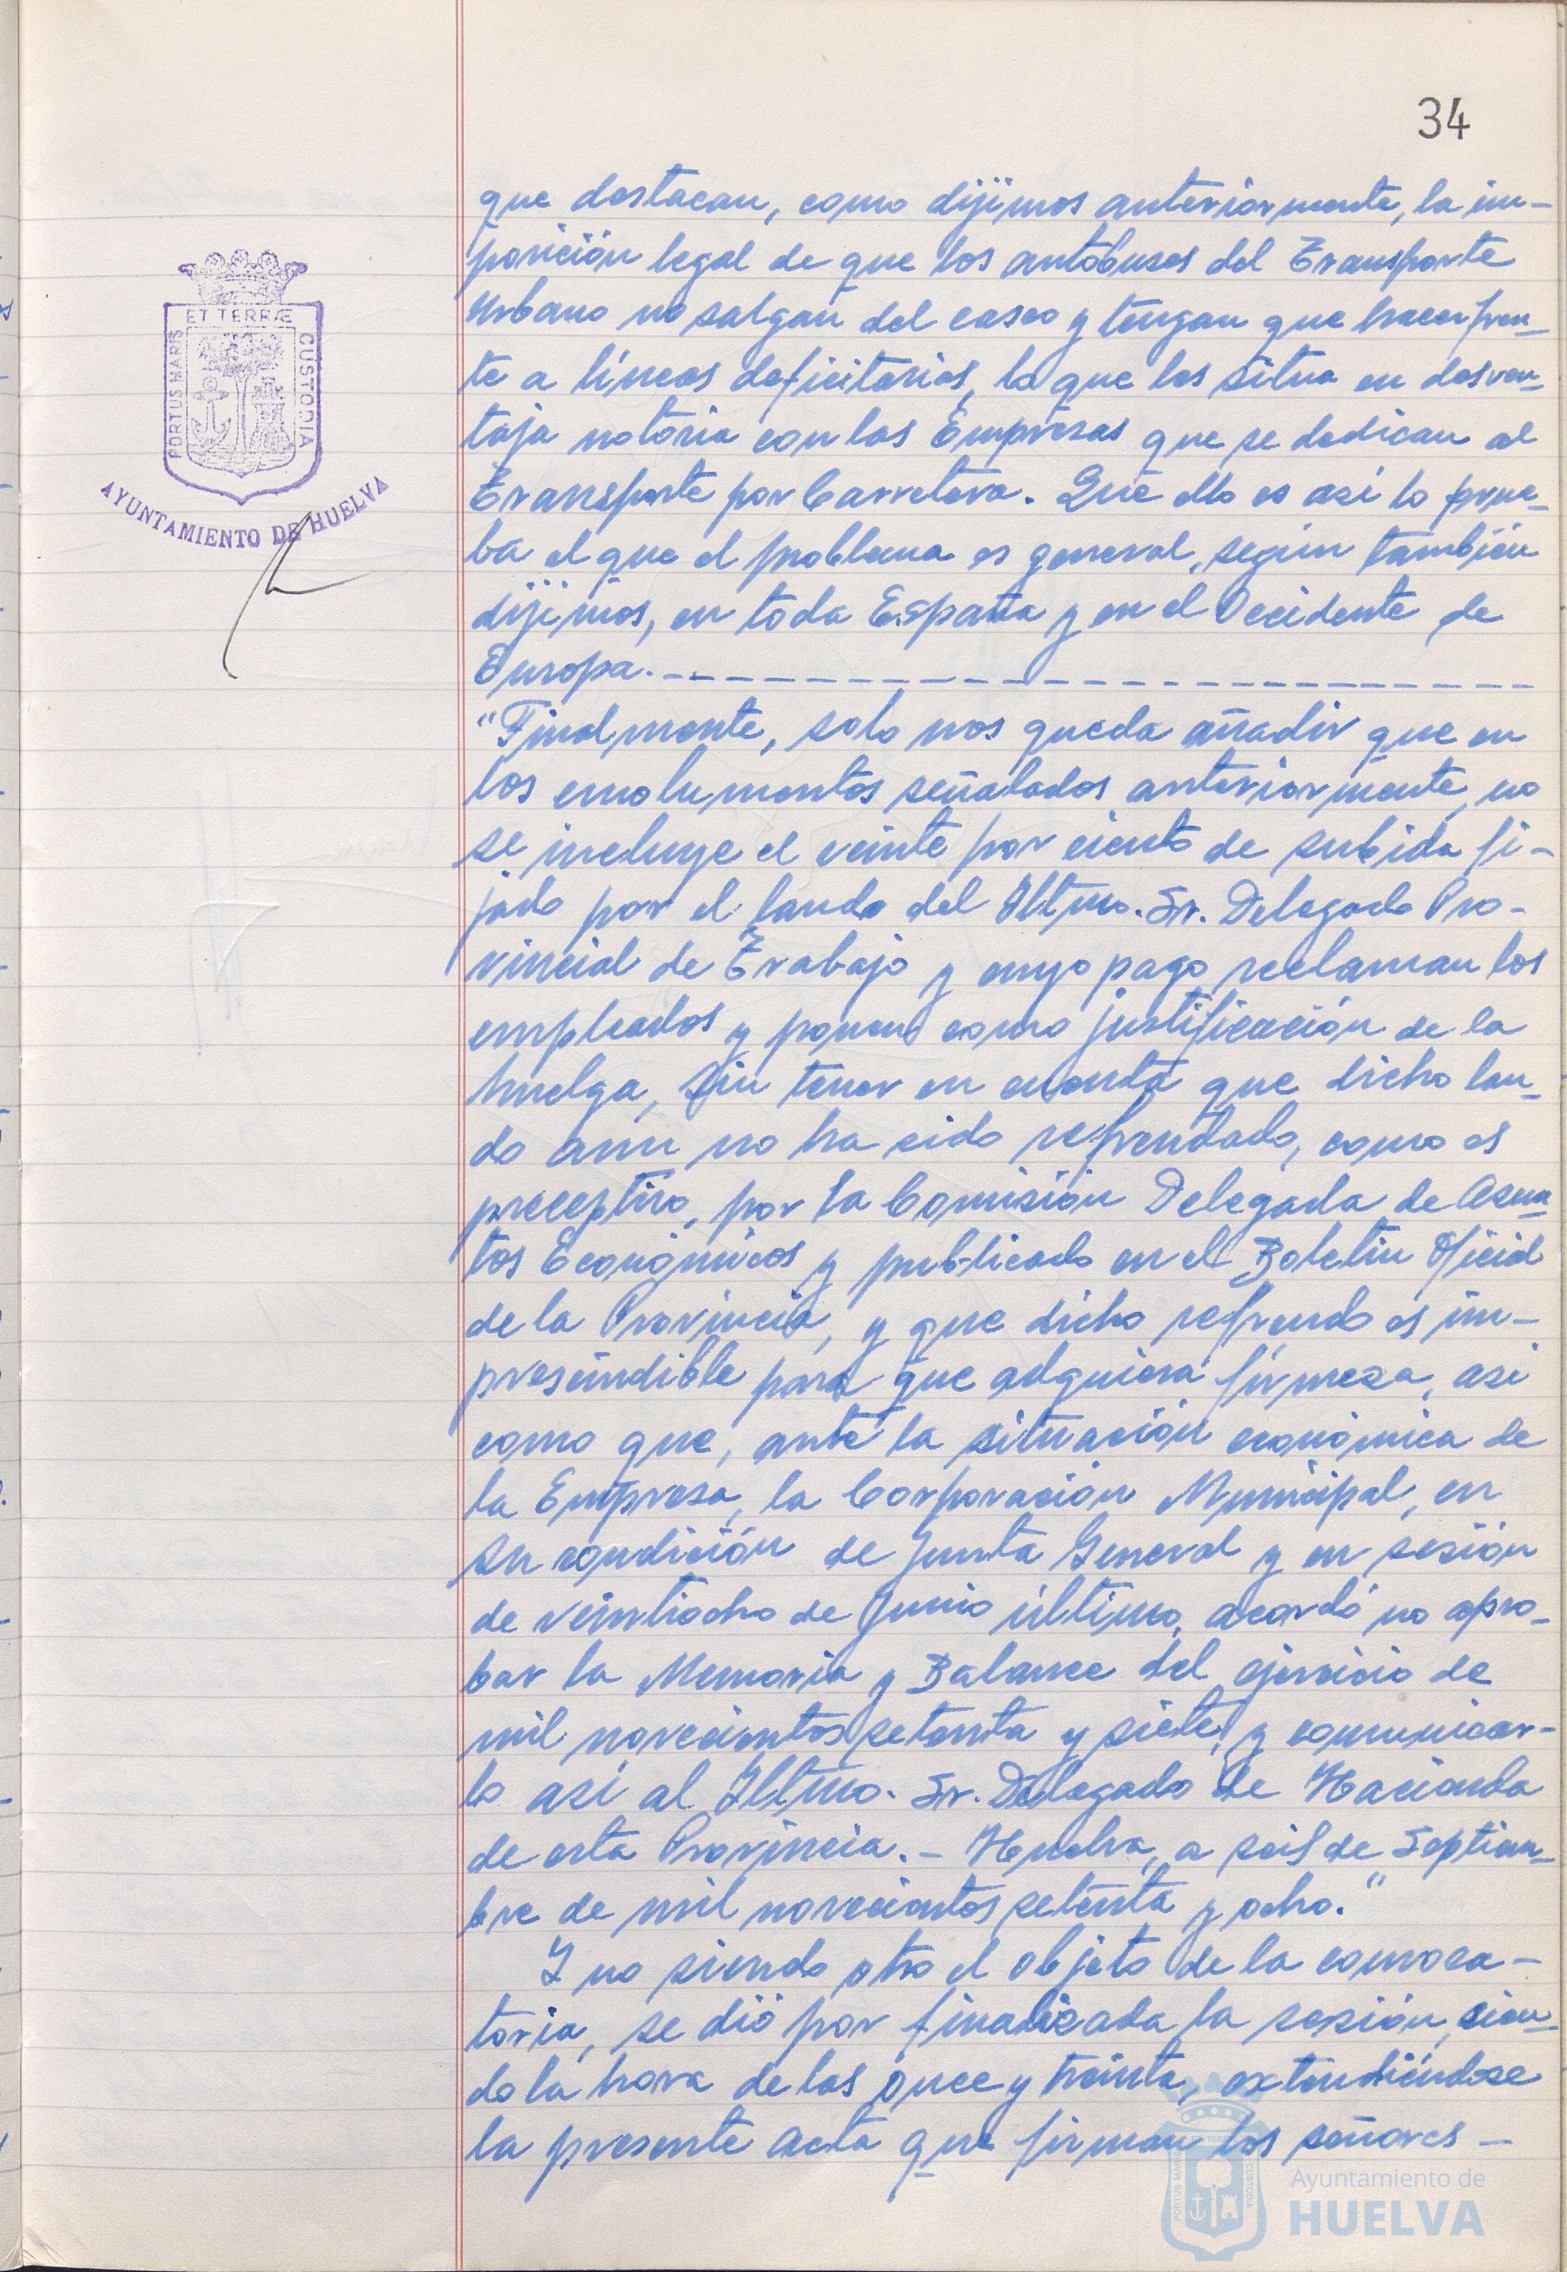 34
que destacan, como dijimos anteriormente, la im-
posición legal de que los autobuses del Transporte
Urbano no salgan del casco y tengan que hacer fren-
te a líneas deficitarias, lo que les situa en desven-
taja notoria con las Empresas que se dedican al
Transporte por Carretera. Que ello es así lo prue-
ba el que el problema es general, según también
dijimos, en toda España y en el Occidente de
Europa.
"Finalmente, solo nos queda añadir que en
los emolumentos señalados anteriormente, no
se incluye el veinte por ciento de subida fi-
jado por el laudo del Iltmo. Sr. Delegado Pro-
vincial de Trabajo y cuyo pago reclaman los
empleados y ponen como justificación de la
huelga, sin tener en cuenta que dicho lau-
do aun no ha sido refrendado, como es
preceptivo, por la Comisión Delegada de Asun-
tos Económicos y publicado en el Boletín Oficial
de la Provincia, y que dicho refrendo es im-
prescindible para que adquiera firmeza, así
como que, ante la situación económica de
la Empresa, la Corporación Municipal, en
su condición de Junta General y en sesión
de veintiocho de Junio último, acordó no apro-
bar la Memoria y Balance del ejercicio de
mil novecientos setenta y siete, y comunicar-
lo así al Iltmo. Sr. Delegado de Hacienda
de esta Provincia.- Huelva, a seis de Septiem-
bre de mil novecientos setenta y ocho."
Y no siendo otro el objeto de la convoca-
toria, se dió por finalizada la sesión, sien-
do la hora de las once y treinta, extendiéndose
la presente acta que firman los señores -
ET TERRÆ
PORTUS MARIS
CUSTODIA
AYUNTAMIENTO DE HUELVA
Ayuntamiento de
HUELVA